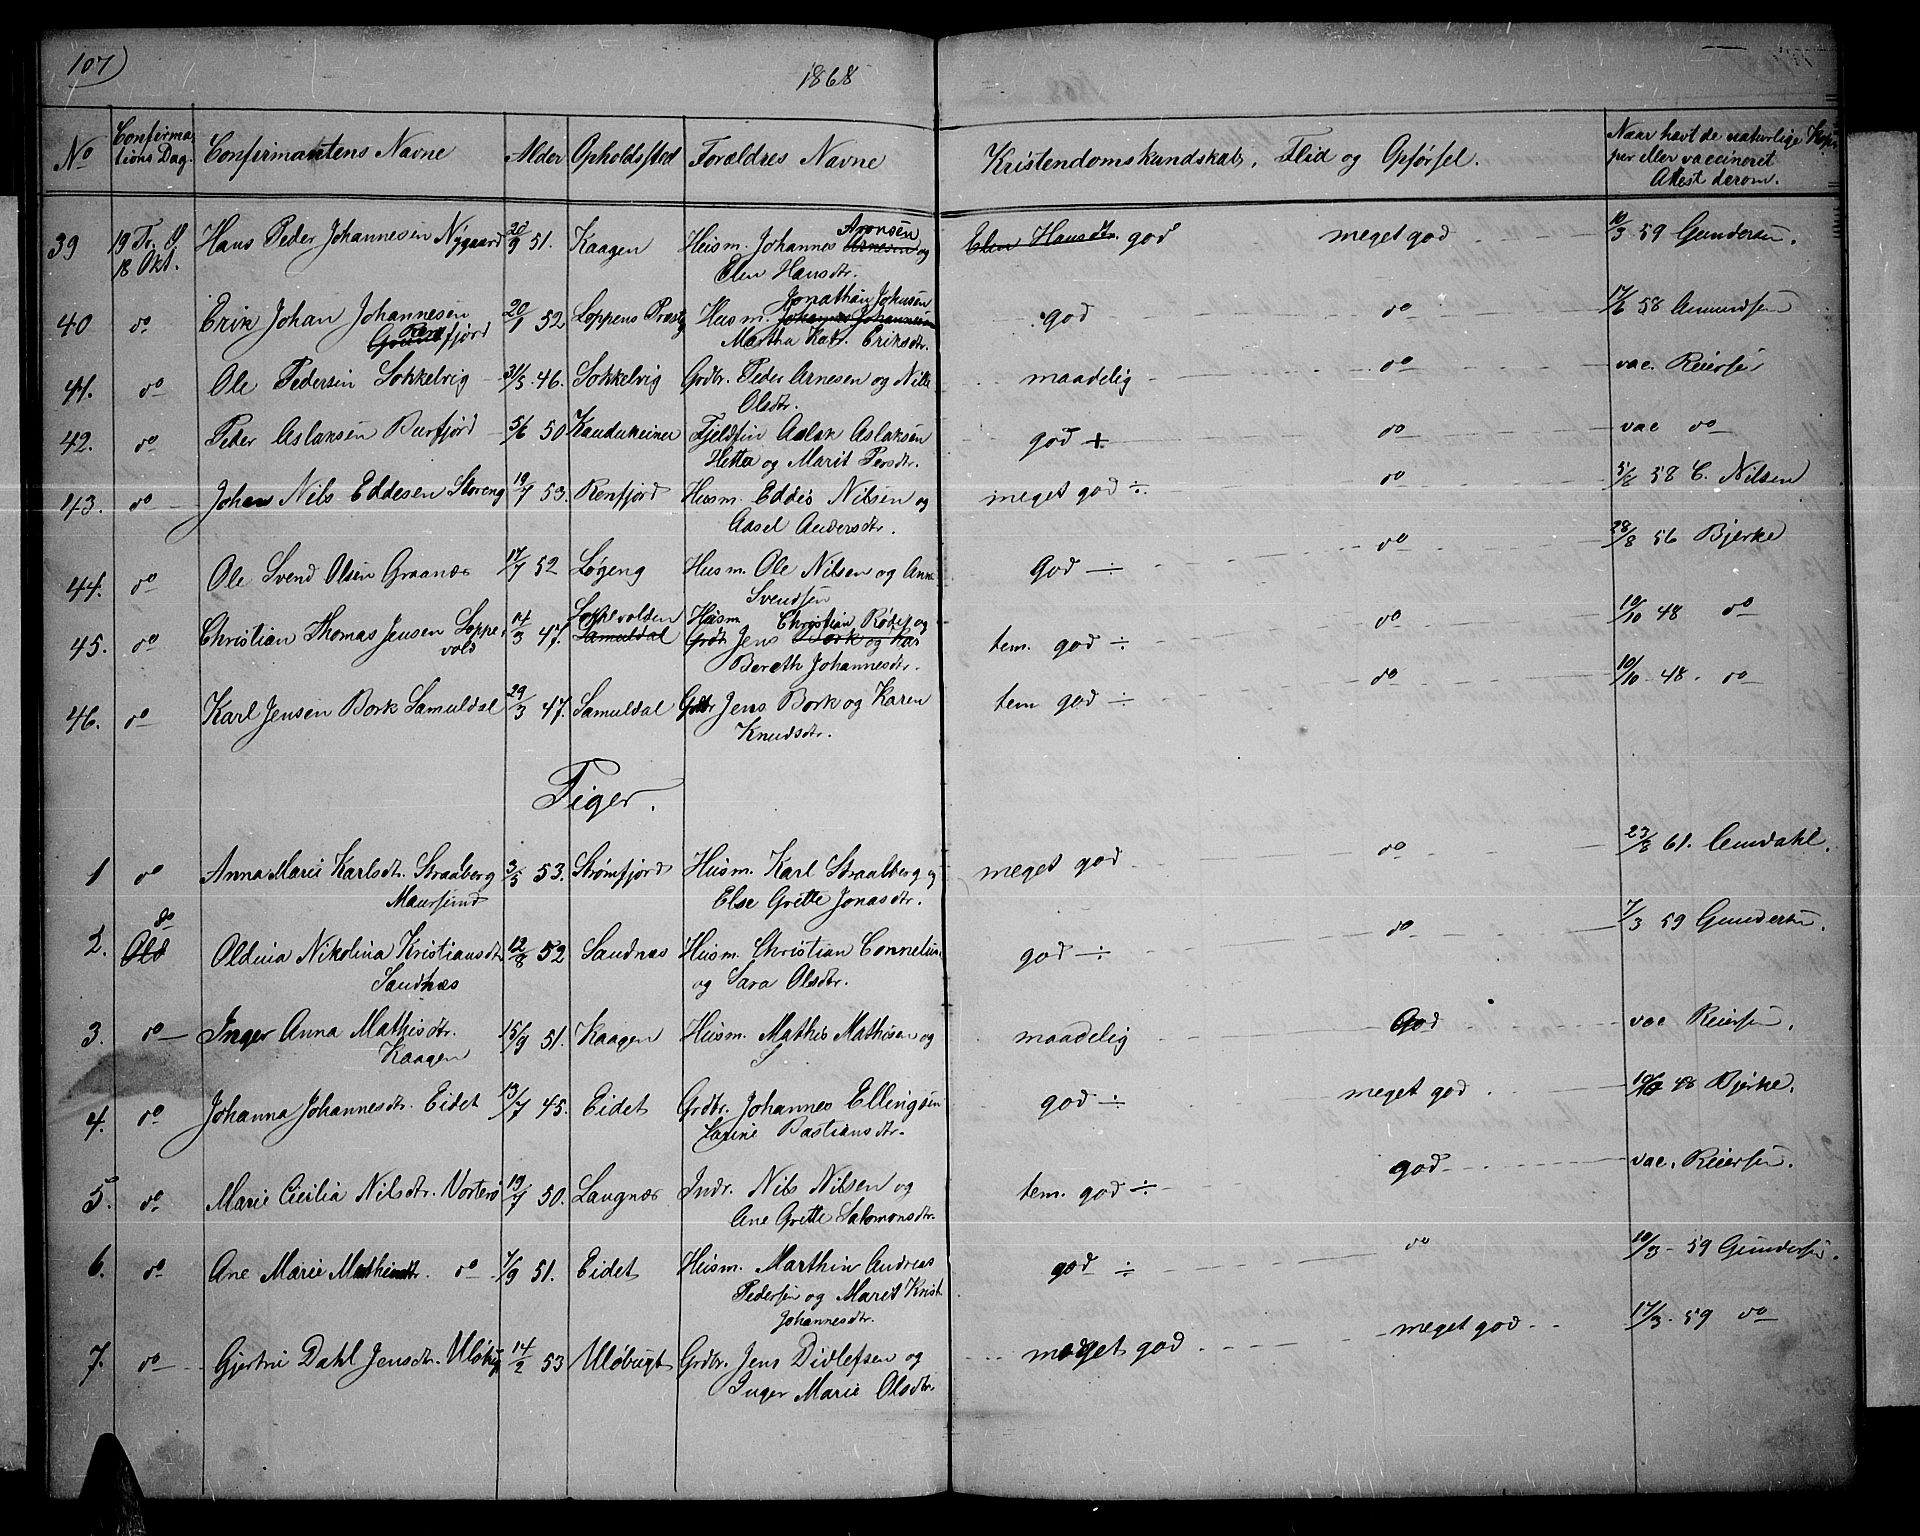 107)
1868
No Confirma- tions Dag. Confirmantens Navne Alder Opholdssted Forældres Navne Kristendomskundskab, Flid og Opførsel. Naar havt de naturlige Kop-
per eller vaccineret
Attest derom.
39 19 Tr. 18 Okt. Hans Peder Johannesen Nygaard 20/9 51. Kaagen Husm. Johannes Aronsen Arnesen og Elen Hansdtr. god meget god 10/3 59 Gundersen.
Elen Hansdtr.
40 do Erik Johan Johannesen 20/1 52 Loppens Præstg Husm. Jonathan Johnsen Johannes Johannesen god do 17/6 58 Amundsen
fjord Martha Katr. Eriksdtr.
41. do Ole Pedersen Sokkelvig 31/3 46. Sokkelvig Grdbr. Peder Arnesen og Nille maadelig do vac. Reiersen
Olsdtr.
42. do Peder Aslaksen Burfjord 5/6 50 Kaudukeiner Fjeldfin Aslak Aslaksen god + do vac do
Hetta og Marit Persdtr.
43. do Johan Nils Eddesen Storeng 19/7 53. Renfjord Husm. Eddis Nilsen og meget god ÷ do 5/8 58 C. Nilsen
Aasel Andersdtr.
44. do Ole Svend Olsen Graanæs 17/7 52 Løgeng Husm. Ole Nilsen og Anne god ÷ do 28/8 56 Bjerke
Svendsen
45. do Christian Thomas Jensen Loppe- 14/3 47. Loppevolden Samuldal Husm Grdb Jens Christian Rødej og Bork og Kar tem. god ÷ do 10/10 48 do
vold Bereth Johannesdtr.
46. do Karl Jensen Bork Samuldal 29/3 47. Samuldal Grdbr Jens Bork og Karen tem god ÷ do 10/10 48. do
Knudsdtr.
Piger.
1 do Anna Marie Karlsdtr. Straalberg 3/5 53. Strømfjord Husm. Karl Straalberg og meget god do 23/8 61. Aundahl.
Maursund Else Grette Jonasdtr.
2. do Old Oldina Nikolina Kristiansdtr 12/8 52 Sandnæs Husm. Christian Cornelius. god ÷ do 7/3 59 Gundersen.
Sandnæs og Sara Olsdtr.
3. do Inger Anna Mathisdtr. 15/9 51. Kaagen Husm. Mathis Mathisen og maadelig God vac Reiersen.
Kaagen S
4. do Johanna Johannesdtr. Eidet 13/7 45. Eidet Grdbr. Johannes Ellingsen god ÷ meget god 10/10 48 Bjerke.
Karine Bastiansdtr.
5. do Marie Cicilia Nilsdtr. Vorterø 19/7 50. Laugnæs Indr. Nils Nilsen og tem. god ÷ god vac. Reiersen.
Ane Grette Salomonsdtr.
6. do Ane Marie Mathisdtr. do 7/9 51. Eidet Husm. Marthin Andreas god ÷ do 10/3 59 Gundersen.
Pedersen og Maret Krist.
Johannesdtr.
7. do Gjertru Dahl Jensdtr. Uløbug 14/2 53 Uløbugt Grdbr. Jens Didlefsen og meget god meget god 17/3 59 do
Inger Marie Olsdtr.